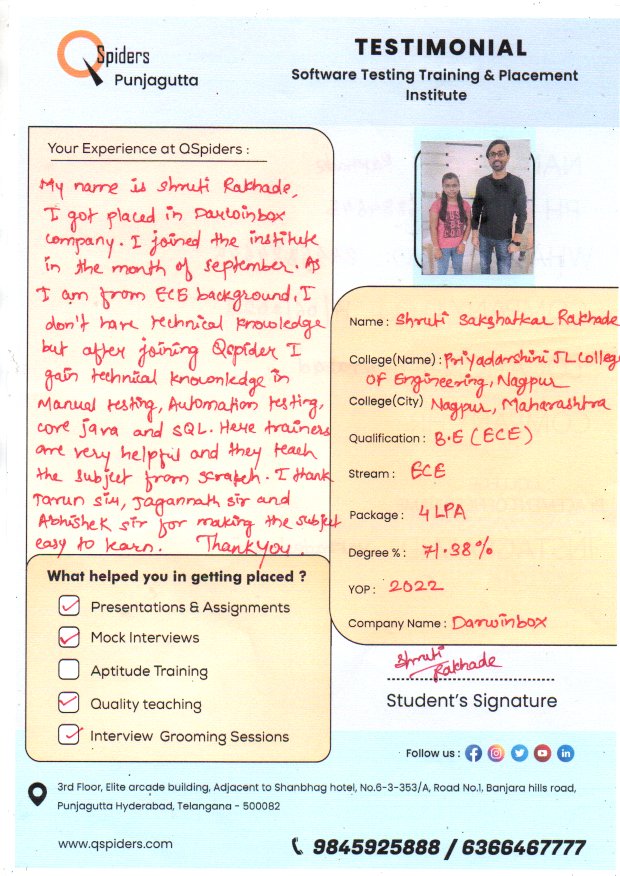 QSpiders
Punjagutta
TESTIMONIAL
Software Testing Training & Placement
Institute
Your Experience at QSpiders :
My name is Shruti Rakhade,
I got placed in Darwinbox
company. I joined the institute
in the month of September. As
I am from ECE background, I
don't have technical knowledge
but after joining Qspider I
gain technical knowledge in
Manual testing, Automation testing,
core java and SQL. Here trainers
are very helpful and they teach
the subject from scratch. I thank
Tarun sir, Jagannath sir and
Abhishek sir for making the subject
easy to learn. Thank you.
Name : Shruti Sakshatkar Rakhade
College(Name) : Priyadarshini JL College
Of Engineering, Nagpur
College(City) Nagpur, Maharashtra
Qualification : B.E (ECE)
Stream : ECE
Package : 4 LPA
Degree % : 71.38%
YOP : 2022
Company Name : Darwinbox
What helped you in getting placed ?
Presentations & Assignments
Mock Interviews
Aptitude Training
Quality teaching
Interview Grooming Sessions
Shruti
Rakhade
Student's Signature
Follow us :
3rd Floor, Elite arcade building, Adjacent to Shanbhag hotel, No.6-3-353/A, Road No.1, Banjara hills road,
Punjagutta Hyderabad, Telangana - 500082
www.qspiders.com
9845925888 / 6366467777